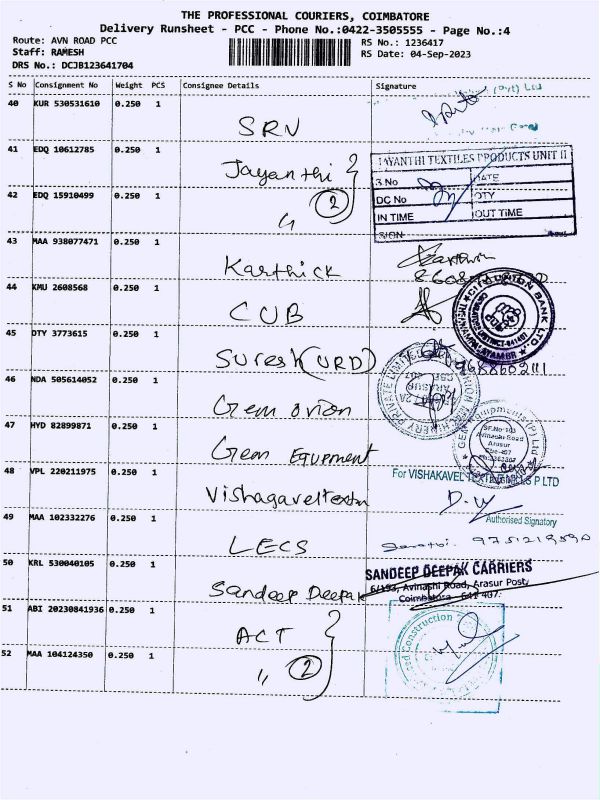 THE PROFESSIONAL COURIERS, COIMBATORE
Delivery Runsheet - PCC - Phone No.:0422-3505555 - Page No.:4
Route: AVN ROAD PCC
RS No.: 1236417
Staff: RAMESH
RS Date: 04-Sep-2023
DRS No.: DCJB123641704
S No Consignment No Weight PCS Consignee Details Signature
40 KUR 530531610 0.250 1
SRN
41 EDQ 10612785 0.250 1
Jayanthi
JAYANTHI TEXTILES PRODUCTS UNIT II
S No DATE
DC No QTY
IN TIME OUT TIME
SIGN
42 EDQ 15910499 0.250 1
" 2
43 MAA 938077471 0.250 1
Karthick
44 KMU 2608568 0.250 1
CUB
45 DTY 3773615 0.250 1
Suresh (URD)
9688602111
46 NDA 505614052 0.250 1
Gem orion
47 HYD 82899871 0.250 1
Gem Equpment
GEM Equipments (P) Ltd
SF.No
Avinashi Road
Arasur
48 VPL 220211975 0.250 1
Vishagaveltextn
For VISHAKAVEL TEXTILE MILLS P LTD
Authorised Signatory
49 MAA 102332276 0.250 1
LECS
50 KRL 530040105 0.250 1
Sandeep Deepak
SANDEEP DEEPAK CARRIERS
6/193, Avinashi Road, Arasur Post,
Coimbatore - 641 407.
51 ABI 20230841936 0.250 1
ACT
52 MAA 104124350 0.250 1
" 2